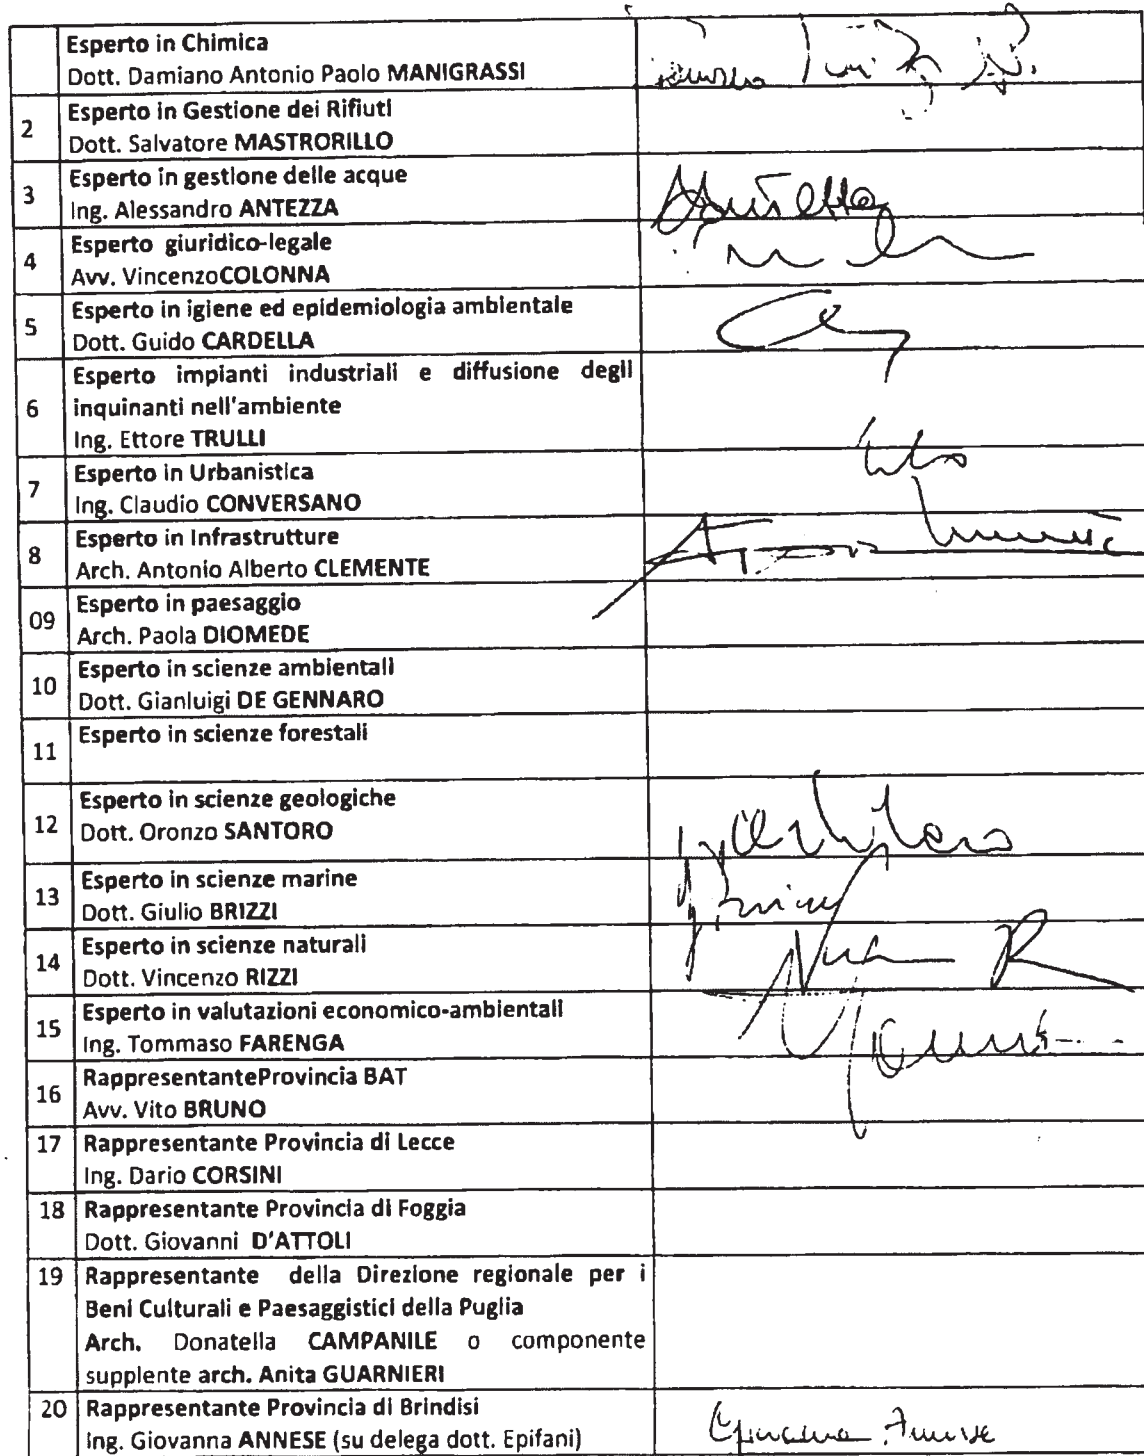 Esperto in Chimica
Dott. Damiano Antonio Paolo MANIGRASSI
2
Esperto in Gestione dei Rifiuti
Dott. Salvatore MASTRORILLO
3
Esperto in gestione delle acque
Ing. Alessandro ANTEZZA
4
Esperto giuridico-legale
Avv. VincenzoCOLONNA
5
Esperto in igiene ed epidemiologia ambientale
Dott. Guido CARDELLA
6
Esperto impianti industriali e diffusione degli
inquinanti nell'ambiente
Ing. Ettore TRULLI
7
Esperto in Urbanistica
Ing. Claudio CONVERSANO
8
Esperto in Infrastrutture
Arch. Antonio Alberto CLEMENTE
09
Esperto in paesaggio
Arch. Paola DIOMEDE
10
Esperto in scienze ambientali
Dott. Gianluigi DE GENNARO
11
Esperto in scienze forestali
12
Esperto in scienze geologiche
Dott. Oronzo SANTORO
13
Esperto in scienze marine
Dott. Giulio BRIZZI
14
Esperto in scienze naturali
Dott. Vincenzo RIZZI
15
Esperto in valutazioni economico-ambientali
Ing. Tommaso FARENGA
16
RappresentanteProvincia BAT
Avv. Vito BRUNO
17 Rappresentante Provincia di Lecce
Ing. Dario CORSINI
18 Rappresentante Provincia di Foggia
Dott. Giovanni D'ATTOLI
19 Rappresentante della Direzione regionale per i
Beni Culturali e Paesaggistici della Puglia
Arch. Donatella CAMPANILE o componente
supplente arch. Anita GUARNIERI
20 Rappresentante Provincia di Brindisi
Ing. Giovanna ANNESE (su delega dott. Epifani)